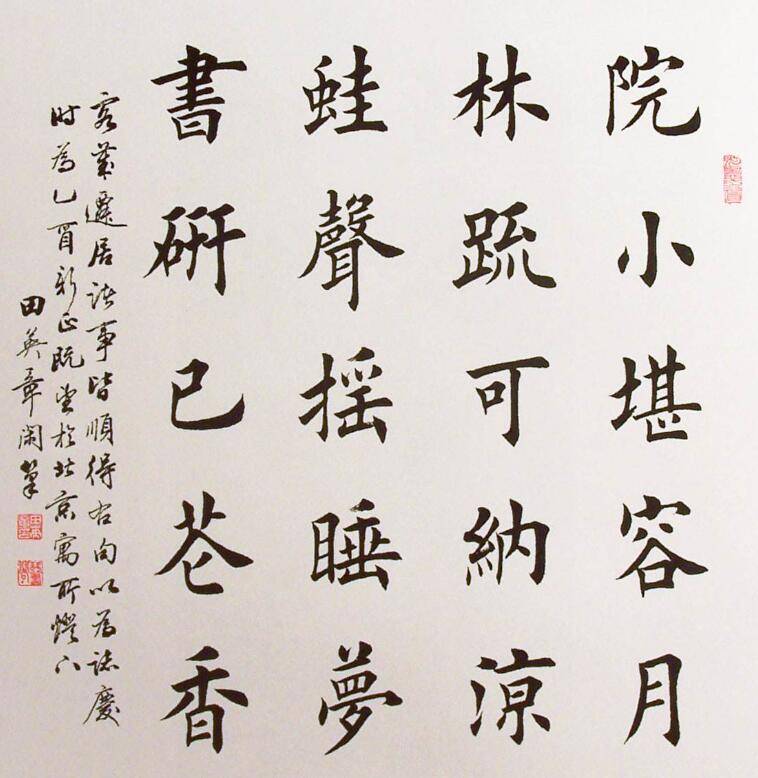 院小堪容月
林疏可納涼
蛙聲搖睡夢
書研已花香
客歲遷居諸事皆順得右句以為誌慶
时為乙酉新正既望於北京寓所燈下
田英章閑筆